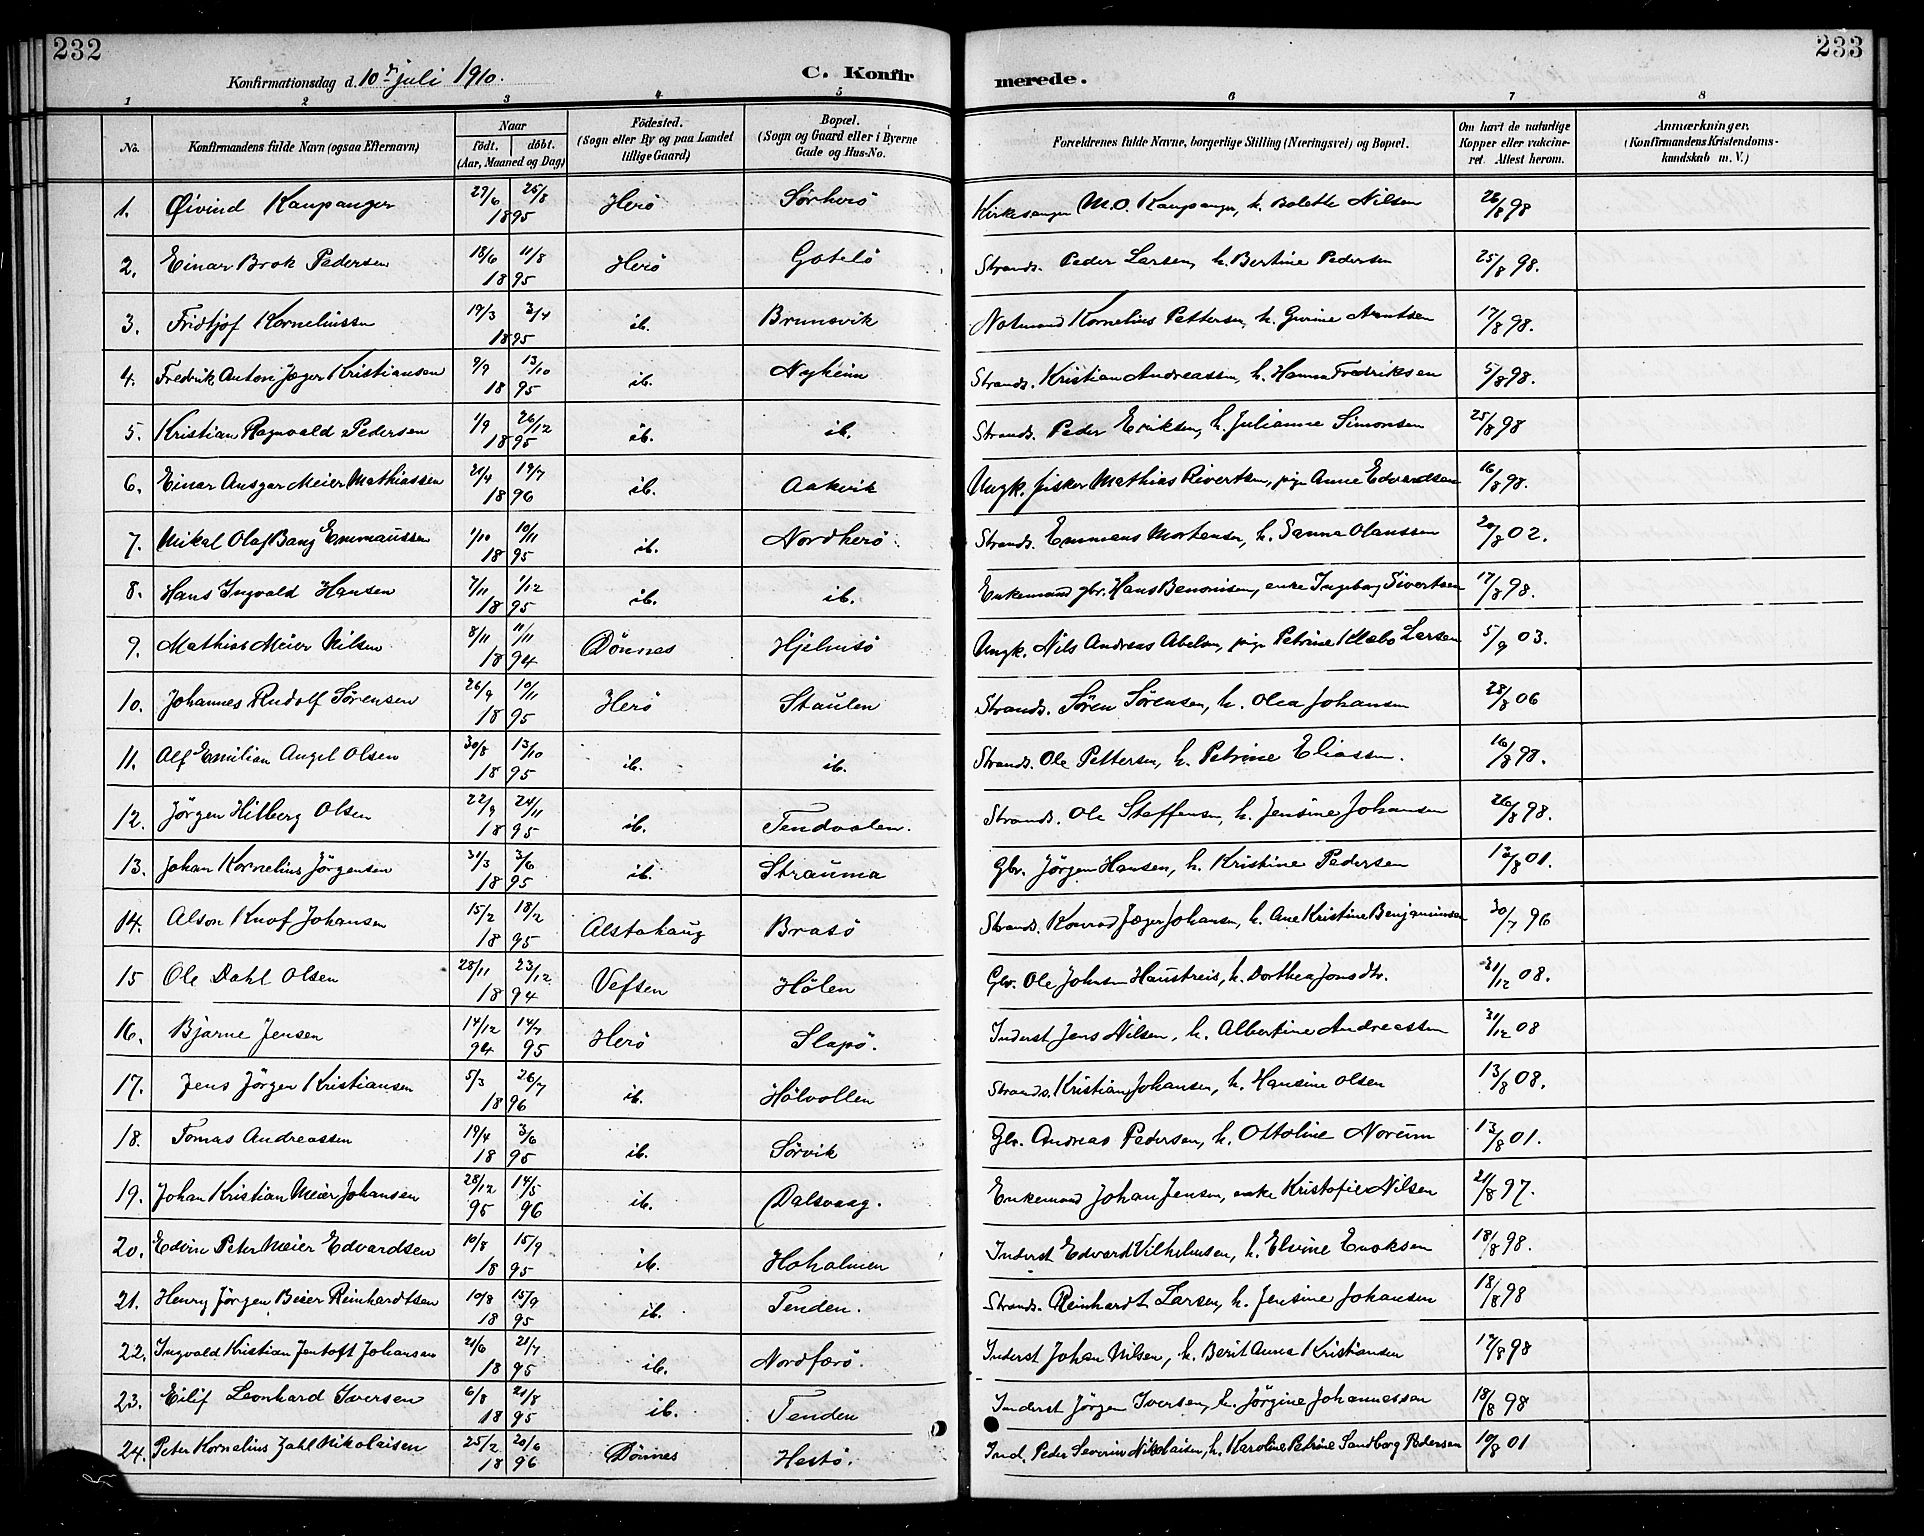 232
233
Konfirmationsdag d. 10de juli 1910.
C. Konfir
merede.
1 2 3 4 5 6 7 8
No.
Konfirmandens fulde Navn (ogsaa Efternavn)
Naar
født. døbt.
(Aar, Maaned og Dag)
Fødested.
(Sogn eller By og paa Landet
tillige Gaard)
Bopæl.
(Sogn og Gaard eller i Byerne
Gade og Hus-No.
Forældrenes fulde Navne, borgerlige Stilling (Næringsvei) og Bopæl.
Om havt de naturlige
Kopper eller vakcine-
ret. Attest herom.
Anmærkninger.
(Konfirmandens Kristendoms-
kundskab m. V.)
1. Øivind Kaupanger 27/6 25/8 1895 Herö Sörherö Kirkesanger M.O. Kaupanger, h. Bolette Nilsen 26/8 98
2. Einar Brok Pedersen 18/6 11/8 1895 Herö Gåtelö Strands. Peder Larsen, h. Bertine Pedersen 25/8 98.
3. Fridtjof Kornelius​sen 19/3 3/4 1895 ib. Brunsvik Notmand Kornelius Pettersen, h. Gurine Arntsen 17/8 98.
4. Fredrik Anton Jæger Kristiansen 9/9 13/10 1895 ib. Nyheim Strands. Kristian Andreassen, h. Hanna Fredriksen 5/8 98.
5. Kristian Ragnvald Pedersen 1/9 26/12 1895 ib. ib. Strands. Peder Eriksen, h. Julianne Simonsen 25/8 98
6. Einar Ansgar Meier Mathiassen 21/4 19/7 1896 ib. Aakvik Ungk. fisker Mathias Sivertsen, pige Anne Edvardsen 16/8 98.
7. Mikal Olaf Bang Emmaussen 1/10 10/11 1895 ib. Nordherö. Strands. Emmaus Mortensen, h. Sanna Olaussen 20/8 02.
8. Hans Ingvald Hansen 7/11 1/12 1895 ib. ib. Enkemand gbr. Hans Benonisen, enke Ingeborg Sivertsen 17/8 98.
9. Mathias Meier Nilsen 8/11 11/11 1894 Dönnes Hjelmsö Ungk. Nils Andreas Abelsen, pige Petrine Klæbo Larsen 5/9 03.
10. Johannes Rudolf Sörensen 26/9 10/11 1895 Herö Staulen Strands. Sören Sörensen, h. Olea Johansen 28/8 06
11. Alf Emilian Angel Olsen 30/8 13/10 1895 ib. ib. Strands. Ole Pettersen, h. Petrine Eliassen. 16/8 98.
12. Jörgen Hilberg Olsen 22/9 24/11 1895 ib. Tendvalen. Strands. Ole Steffensen, h. Jensine Johansen 26/8 98.
13. Johan Kornelius Jörgensen 31/3 3/6 1895 ib. Strauma Gbr. Jörgen Hansen, h. Kristine Pedersen 13/8 01.
14. Alson Knof Johansen 15/2 18/2 1895 Alstahaug Brasö Strands. Konrad Jæger Johansen, h. Ane Kristine Benjaminsen 30/7 96
15 Ole Dahl Olsen 28/11 23/12 1894 Vefsen Hölen Gbr. Ole Johnsen Haustreis, h. Dorthea Jonsdtr. 31/12 08.
16. Bjarne Jensen 14/12 94 14/7 95 Herö Slapö. Inderst Jens Nilsen, h. Albertine Andreassen 31/12 08
17. Jens Jörgen Kristiansen 5/3 26/7 1896 ib. Hölvollen Strands. Kristian Johansen, h. Hansine Olsen 13/8 08.
18. Tomas Andreassen 19/4 3/6 1895 ib. Sörvik Gbr. Andreas Pedersen, h. Ottoline Norum 13/8 01.
19. Johan Kristian Meier Johansen 28/12 95 14/5 96 ib. Dalsvaag. Enkemand Johan Jensen, enke Kristofie Nilsen 21/8 97.
20. Edvin Peter Meier Edvardsen 10/8 15/9 1895 ib. Hoholmen Inderst Edvard Vilhelmsen, h. Elvine Enoksen 18/8 98.
21. Henry Jörgen Beier Reinhardtsen 10/8 15/9 1895 ib. Tenden. Strands. Reinhardt Larsen, h. Jensine Johansen 18/8 98
22. Ingvald Kristian Jentoft Johansen 21/6 21/7 1895 ib. Nordforö. Inderst Johan Nilsen, h. Berit Anna Kristiansen 17/8 98
23. Eilif Leonhard Iversen 6/8 21/8 1895 ib. Tenden Inderst Jörgen Iversen, h. Jörgine Johannessen 18/8 98
24. Peter Kornelius Zahl Nikolaisen 25/2 20/6 1896 Dönnes Hestö. Ind. Peder Severin Nikolaisen, h. Karoline Petrine Sandberg Pedersen 10/8 01